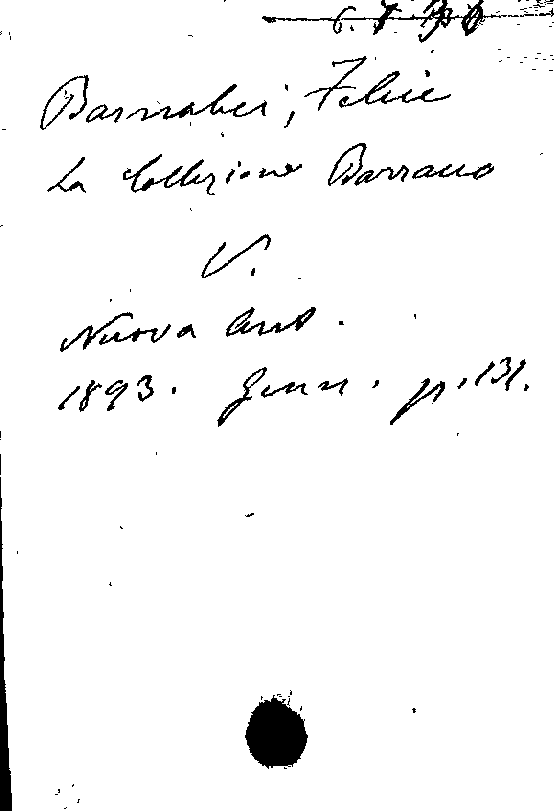 Barnabei, Felice
La Collezione Barracco
V.
Nuova Ant.
1893. Genn. p. 131.